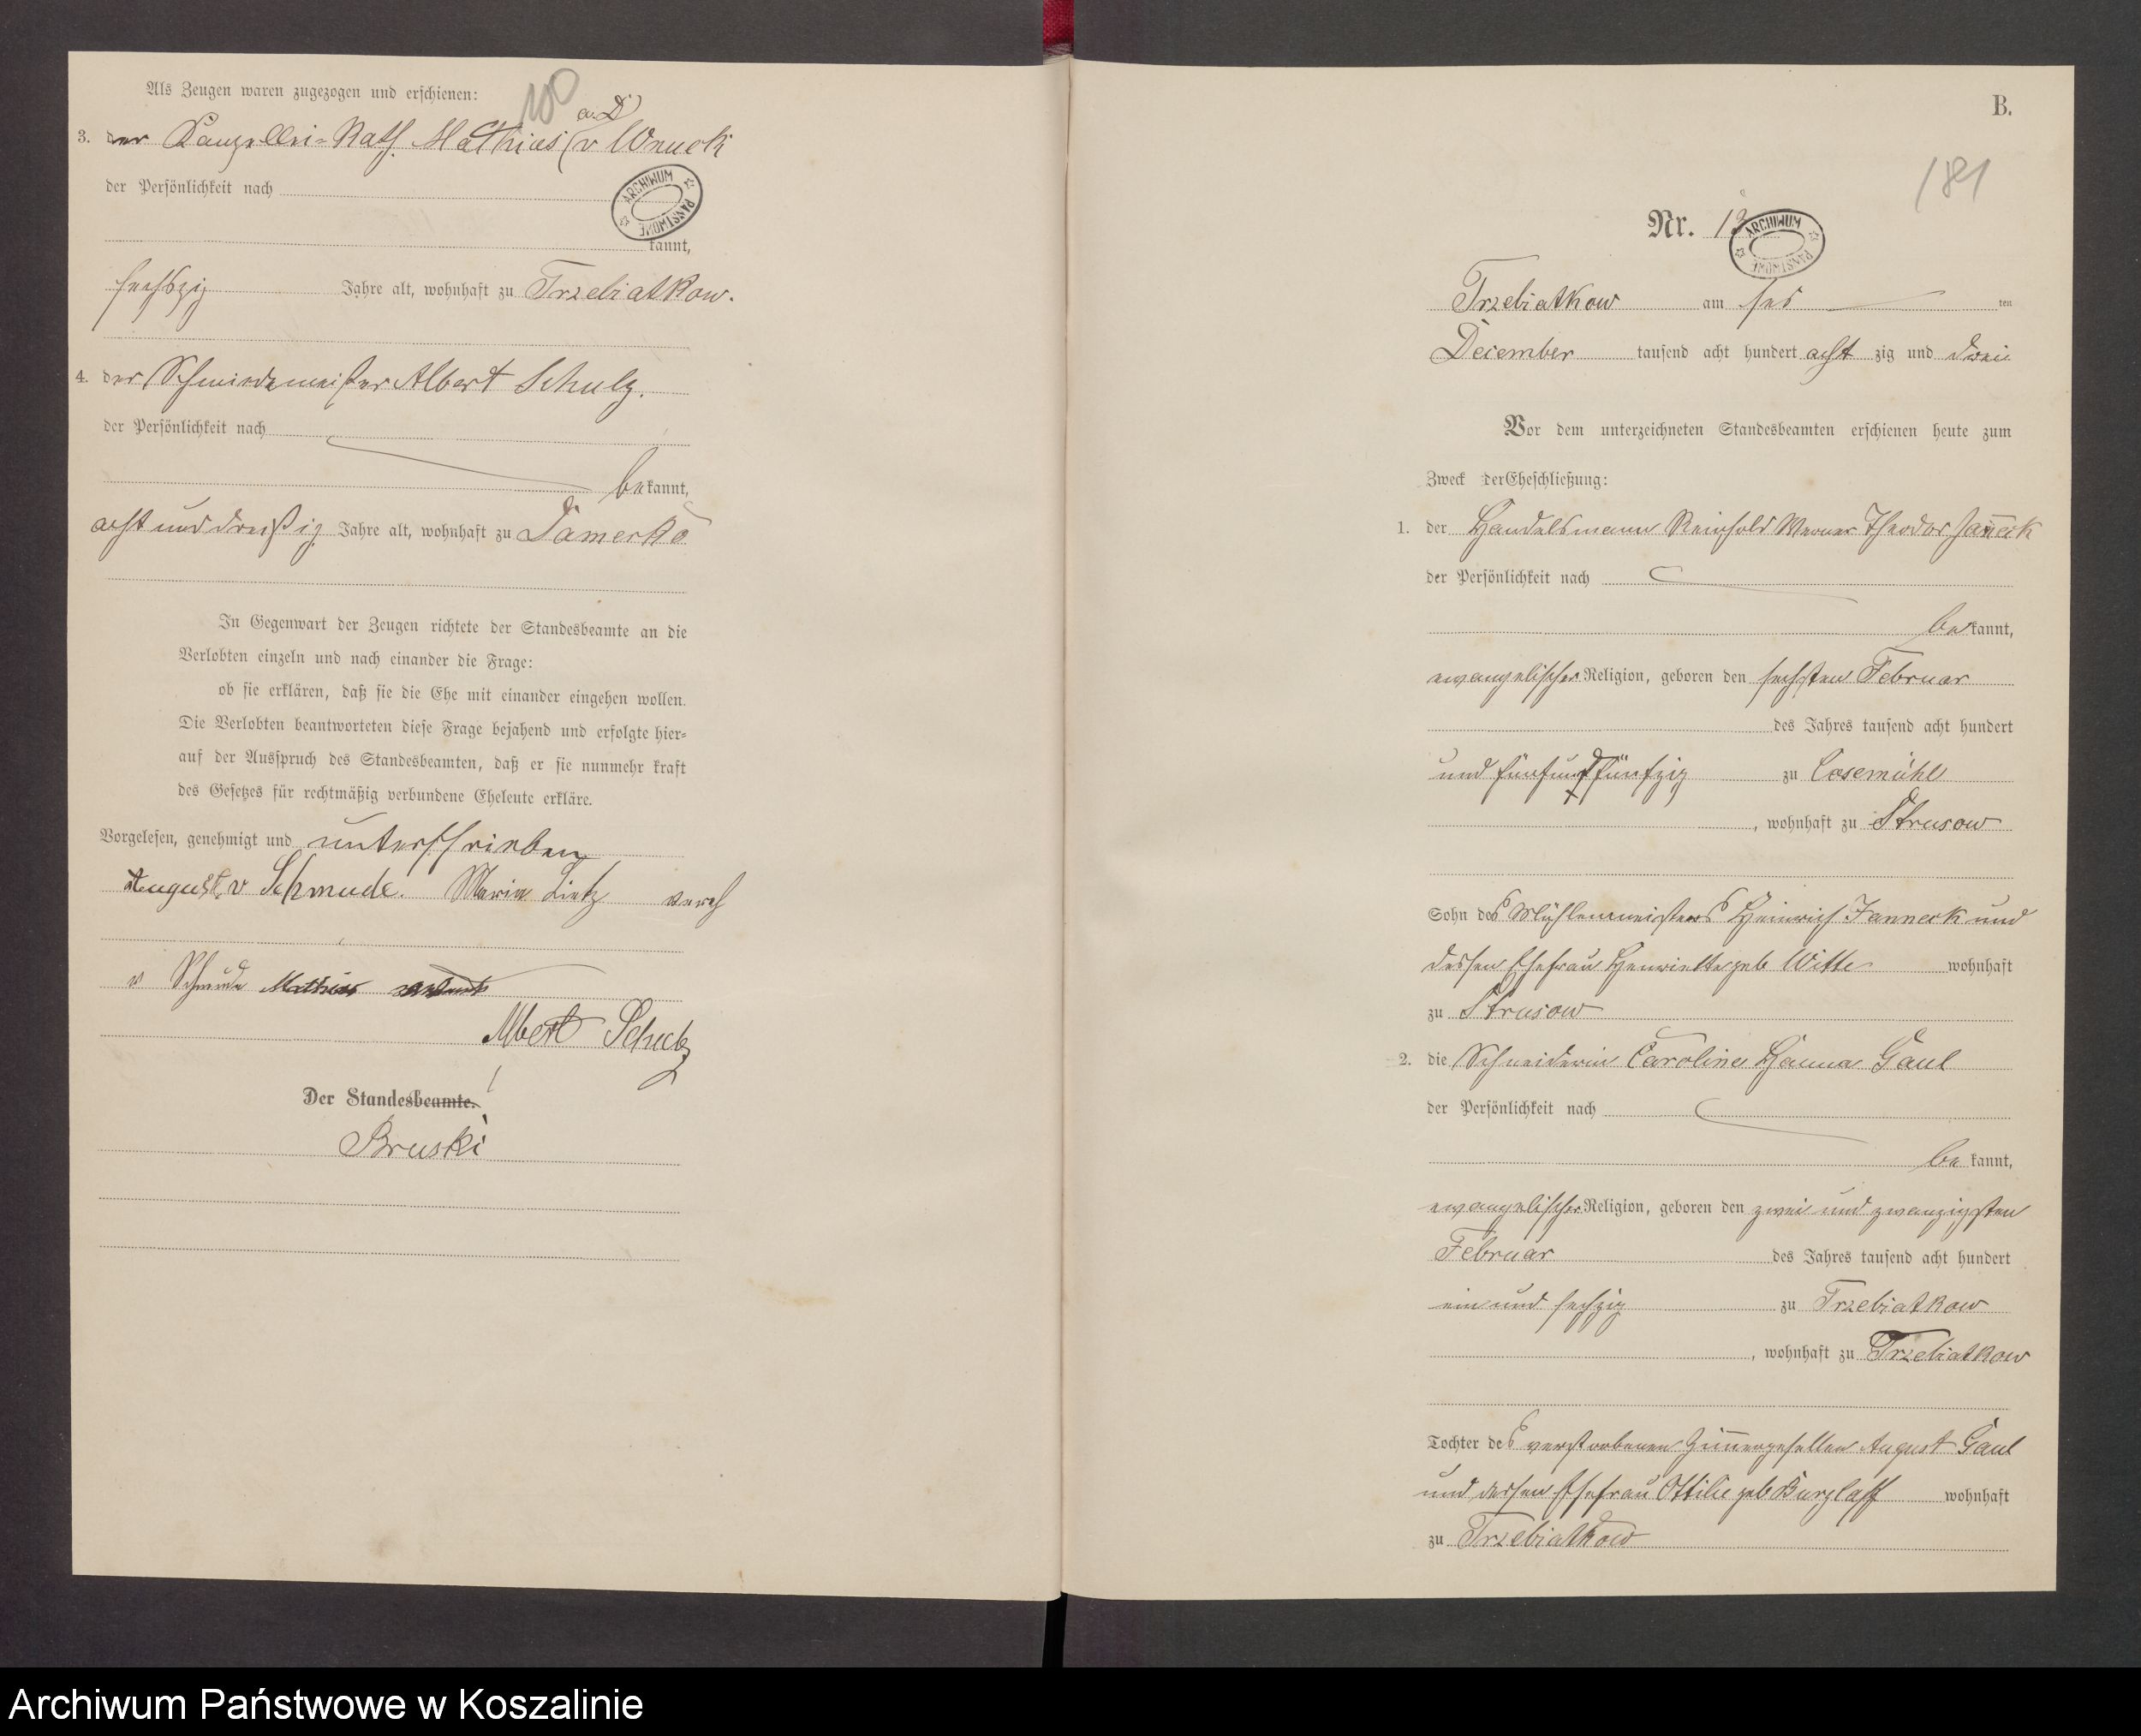 Als Zeugen waren zugezogen und erschienen:
100
a. D
3. der Canzellei-Rath Mathias (v Wnuck
der Persönlichkeit nach
ARCHIWUM PAŃSTWOWE
kannt,
sechszig Jahre alt, wohnhaft zu Trzebiatkow.
4. der Schmiedemeister Albert Schulz.
der Persönlichkeit nach
bekannt,
acht und dreißig Jahre alt, wohnhaft zu Damerkö
In Gegenwart der Zeugen richtete der Standesbeamte an die
Verlobten einzeln und nach einander die Frage:
ob sie erklären, daß sie die Ehe mit einander eingehen wollen.
Die Verlobten beantworteten diese Frage bejahend und erfolgte hier-
auf der Ausspruch des Standesbeamten, daß er sie nunmehr kraft
des Gesetzes für rechtmäßig verbundene Eheleute erkläre.
Vorgelesen, genehmigt und unterschrieben
August v Schmude. Marie Lietz vereh
v Schmude Mathias
Albert Schulz
Der Standesbeamte.
Bruski
B.
181
Nr. 13
ARCHIWUM PAŃSTWOWE
Trzebiatkow am ten
December tausend acht hundert acht zig und drei
Vor dem unterzeichneten Standesbeamten erschienen heute zum
Zweck der Eheschließung:
1. der Handelsmann Reinhold Werner Theodor Janneck
der Persönlichkeit nach
bekannt,
evangelischer Religion, geboren den sechsten Februar
des Jahres tausend acht hundert
und fünfundfünfzig zu Cosemühl
, wohnhaft zu Strusow
Sohn des Mühlenmeisters Heinrich Janneck und
dessen Ehefrau Henriette geb Witte wohnhaft
zu Strusow
2. die Schneiderin Caroline Hanna Gaul
der Persönlichkeit nach
bekannt,
evangelischer Religion, geboren den zwei und zwanzigsten
Februar des Jahres tausend acht hundert
ein und sechzig zu Trzebiatkow
, wohnhaft zu Trzebiatkow
Tochter des verstorbenen Zimmergesellen August Gaul
und dessen Ehefrau Ottilie geb Burzlaff wohnhaft
zu Trzebiatkow
Archiwum Państwowe w Koszalinie